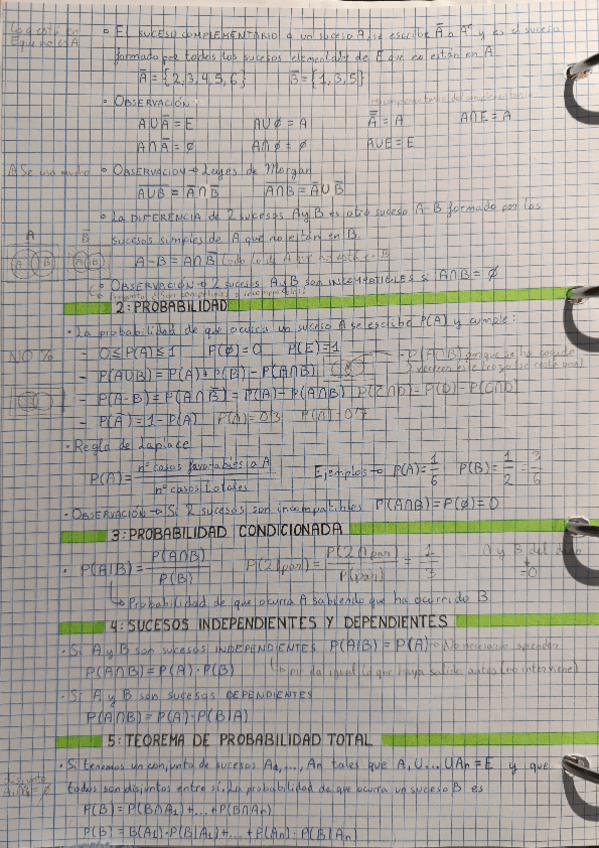 • EL SUCESO COMPLEMENTARIO a un suceso A, se escribe Ā o Aᶜ y es el suceso
formado por todos los sucesos elementales de E que no están en A
Ā = {2,3,4,5,6} B̄ = {1,3,5}
• OBSERVACIÓN:
A∪Ā = E A∪∅ = A A̿ = A A∩E = A
A∩Ā = ∅ A∩∅ = ∅ A∪E = E
• OBSERVACIÓN → Leyes de Morgan
A∪B = Ā∩B̄ A∩B = Ā∪B̄
• La DIFERENCIA de 2 sucesos A y B es otro suceso A-B formado por los
sucesos simples de A que no están en B.
A B
A-B = A∩B̄
• OBSERVACIÓN → 2 sucesos A y B son INCOMPATIBLES si A∩B = ∅
2: PROBABILIDAD
• La probabilidad de que ocurra un suceso A se escribe P(A) y cumple:
NO %
- 0≤P(A)≤1 P(∅)=0 P(E)=1
- P(A∪B) = P(A)+P(B)-P(A∩B)
- P(A-B) = P(A∩B̄) = P(A)-P(A∩B) P(C∩D̄)=P(C)-P(C∩D)
- P(Ā) = 1-P(A) P(A)=0'3 P(Ā)=0'7
• Regla de Laplace
P(A) = nº casos favorables a A / nº casos totales Ejemplos → P(A)=1/6 P(B)=1/2=3/6
• OBSERVACIÓN → Si 2 sucesos son incompatibles P(A∩B)=P(∅)=0
3: PROBABILIDAD CONDICIONADA
• P(A|B) = P(A∩B)/P(B) P(2|par) = P(2∩par)/P(par) = 1/3 A y B del
=0
↳ Probabilidad de que ocurra A sabiendo que ha ocurrido B
4: SUCESOS INDEPENDIENTES Y DEPENDIENTES
• Si A y B son sucesos INDEPENDIENTES P(A|B) = P(A)
P(A∩B) = P(A)·P(B) ↳ me da igual lo que haya salido antes (no interviene)
• Si A y B son sucesos DEPENDIENTES
P(A∩B) = P(A)·P(B|A)
5: TEOREMA DE PROBABILIDAD TOTAL
• Si tenemos un conjunto de sucesos A₁,..., An tales que A₁∪...∪An = E y que
todos son disjuntos entre sí. La probabilidad de que ocurra un suceso B es
P(B) = P(B∩A₁)+...+P(B∩An)
P(B) = B(A₁)·P(B|A₁)+...+P(An)·P(B|An)